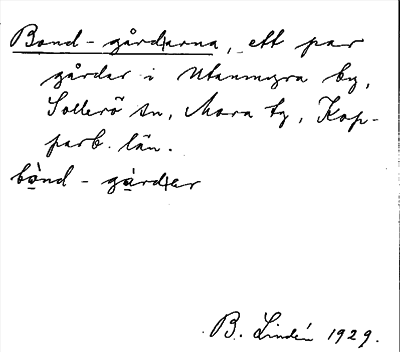 Bond-gårdarna, ett par
gårdar i Utanmyra by,
Sollerö sn, Mora tg, Kop-
parb. län.
bònd - gàrdar
B. Lindén 1929.